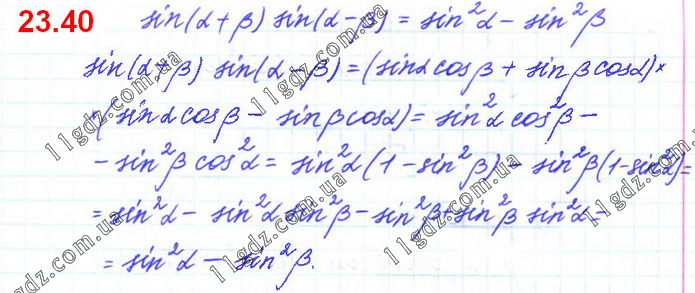 23.40 sin(α+β) sin(α-β) = sin²α - sin²β
sin(α+β) sin(α-β) = (sinα cosβ + sinβ cosα)×
×(sinα cosβ - sinβ cosα) = sin²α cos²β -
- sin²β cos²α = sin²α (1 - sin²β) - sin²β (1-sin²α) =
= sin²α - sin²α sin²β - sin²β + sin²β sin²α =
= sin²α - sin²β.
11gdz.com.ua
11gdz.com.ua
11gdz.com.ua
11gdz.com.ua
11gdz.com.ua